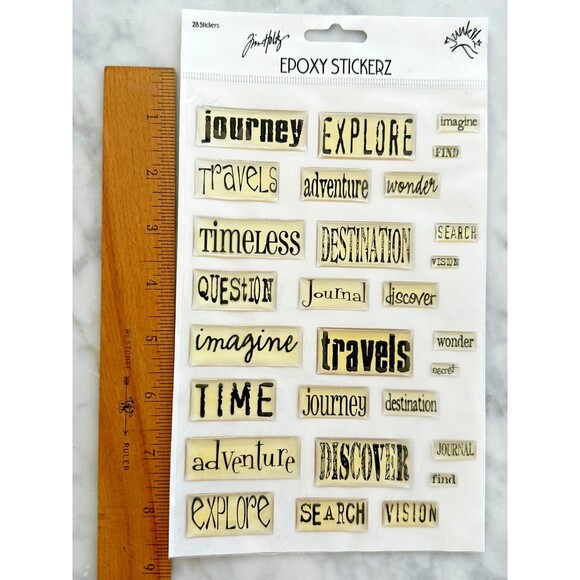 28 Stickers
Tim Holtz
Junkitz
EPOXY STICKERZ
journey EXPLORE imagine
FIND
Travels adventure wonder
Timeless DESTINATION SEARCH
VISION
QUESTION Journal discover
imagine travels wonder
secret
TIME journey destination
adventure DISCOVER JOURNAL
find
EXPLORE SEARCH VISION
1
2
3
4
5
6
7
8
9
WESTCOTT
RULER